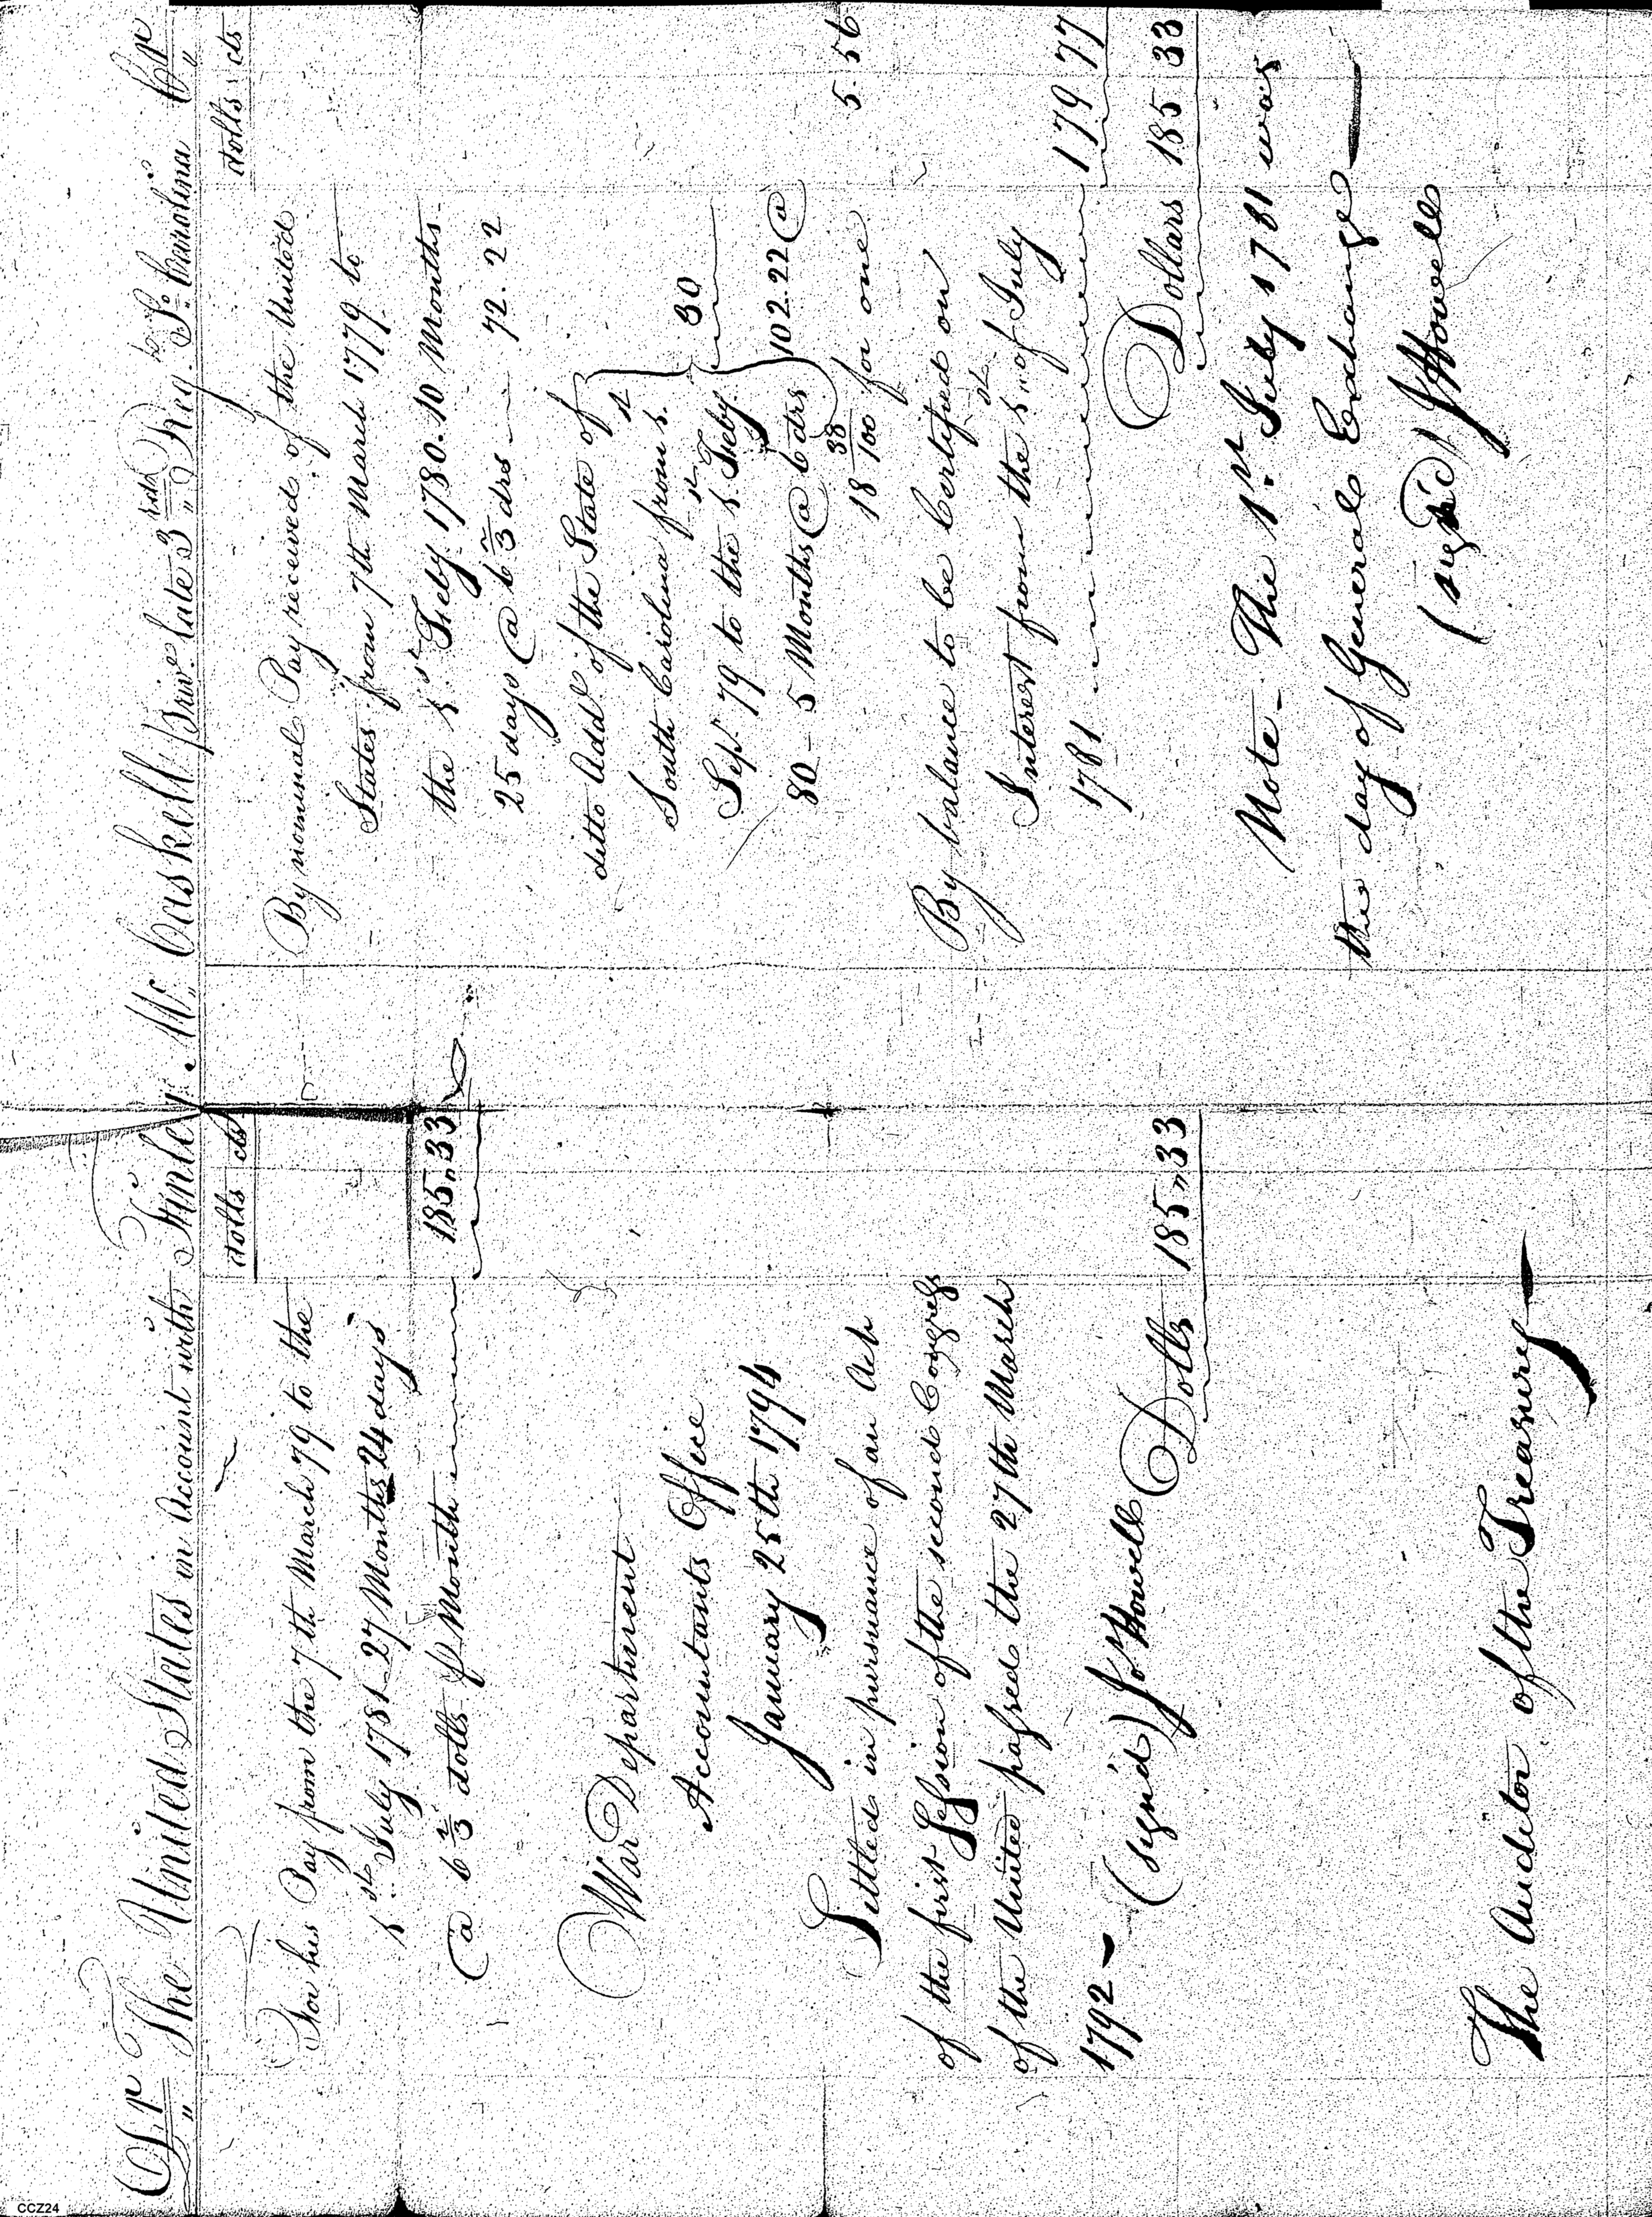 Dr The United States in Account with Finley Mc Caskell priv. late 3rd Reg. So. Carolina Cr
dolls cts
For his Pay from the 7th March 79 to the
1st July 1781 - 27 Months 24 days
@ 6 2/3 dolls pr Month 185.33
War Department
Accountants Office
January 25th 1794
Settled in pursuance of an Act
of the first Session of the second Congress
of the United passed the 27th March
1792 -
(sign'd) Jo. Howell Dolls 185.33
The Auditor of the Treasury
dolls cts
By nominal Pay received of the United
States from 7th March 1779 to
the 1st Feby 1780. 10 Months
25 days @ 6 2/3 drs 72.22
ditto Add of the State of
South Carolina from 1st
Sepr 79 to the 1st Feby 30
80 - 5 Months @ 6 drs 102.22 @
18 38/100 for one 5.56
By balance to be Certified on
Interest from the 1st of July
1781 179 77
Dollars 185 33
Note - The 1st July 1781 was
the day of General Exchange
(sign'd) J Howell
CCZ24